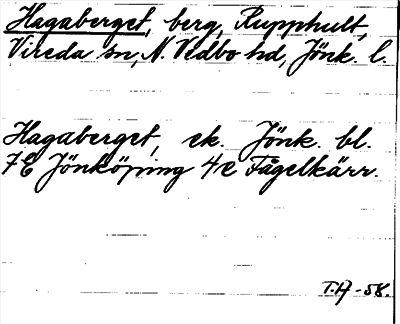 Hagaberget, berg, Rupphult,
Vireda sn, N. Vedbo hd, Jönk. l.
Hagaberget, ek. Jönk. bl.
7E Jönköping 4e Fågelkärr.
T.H. -58.